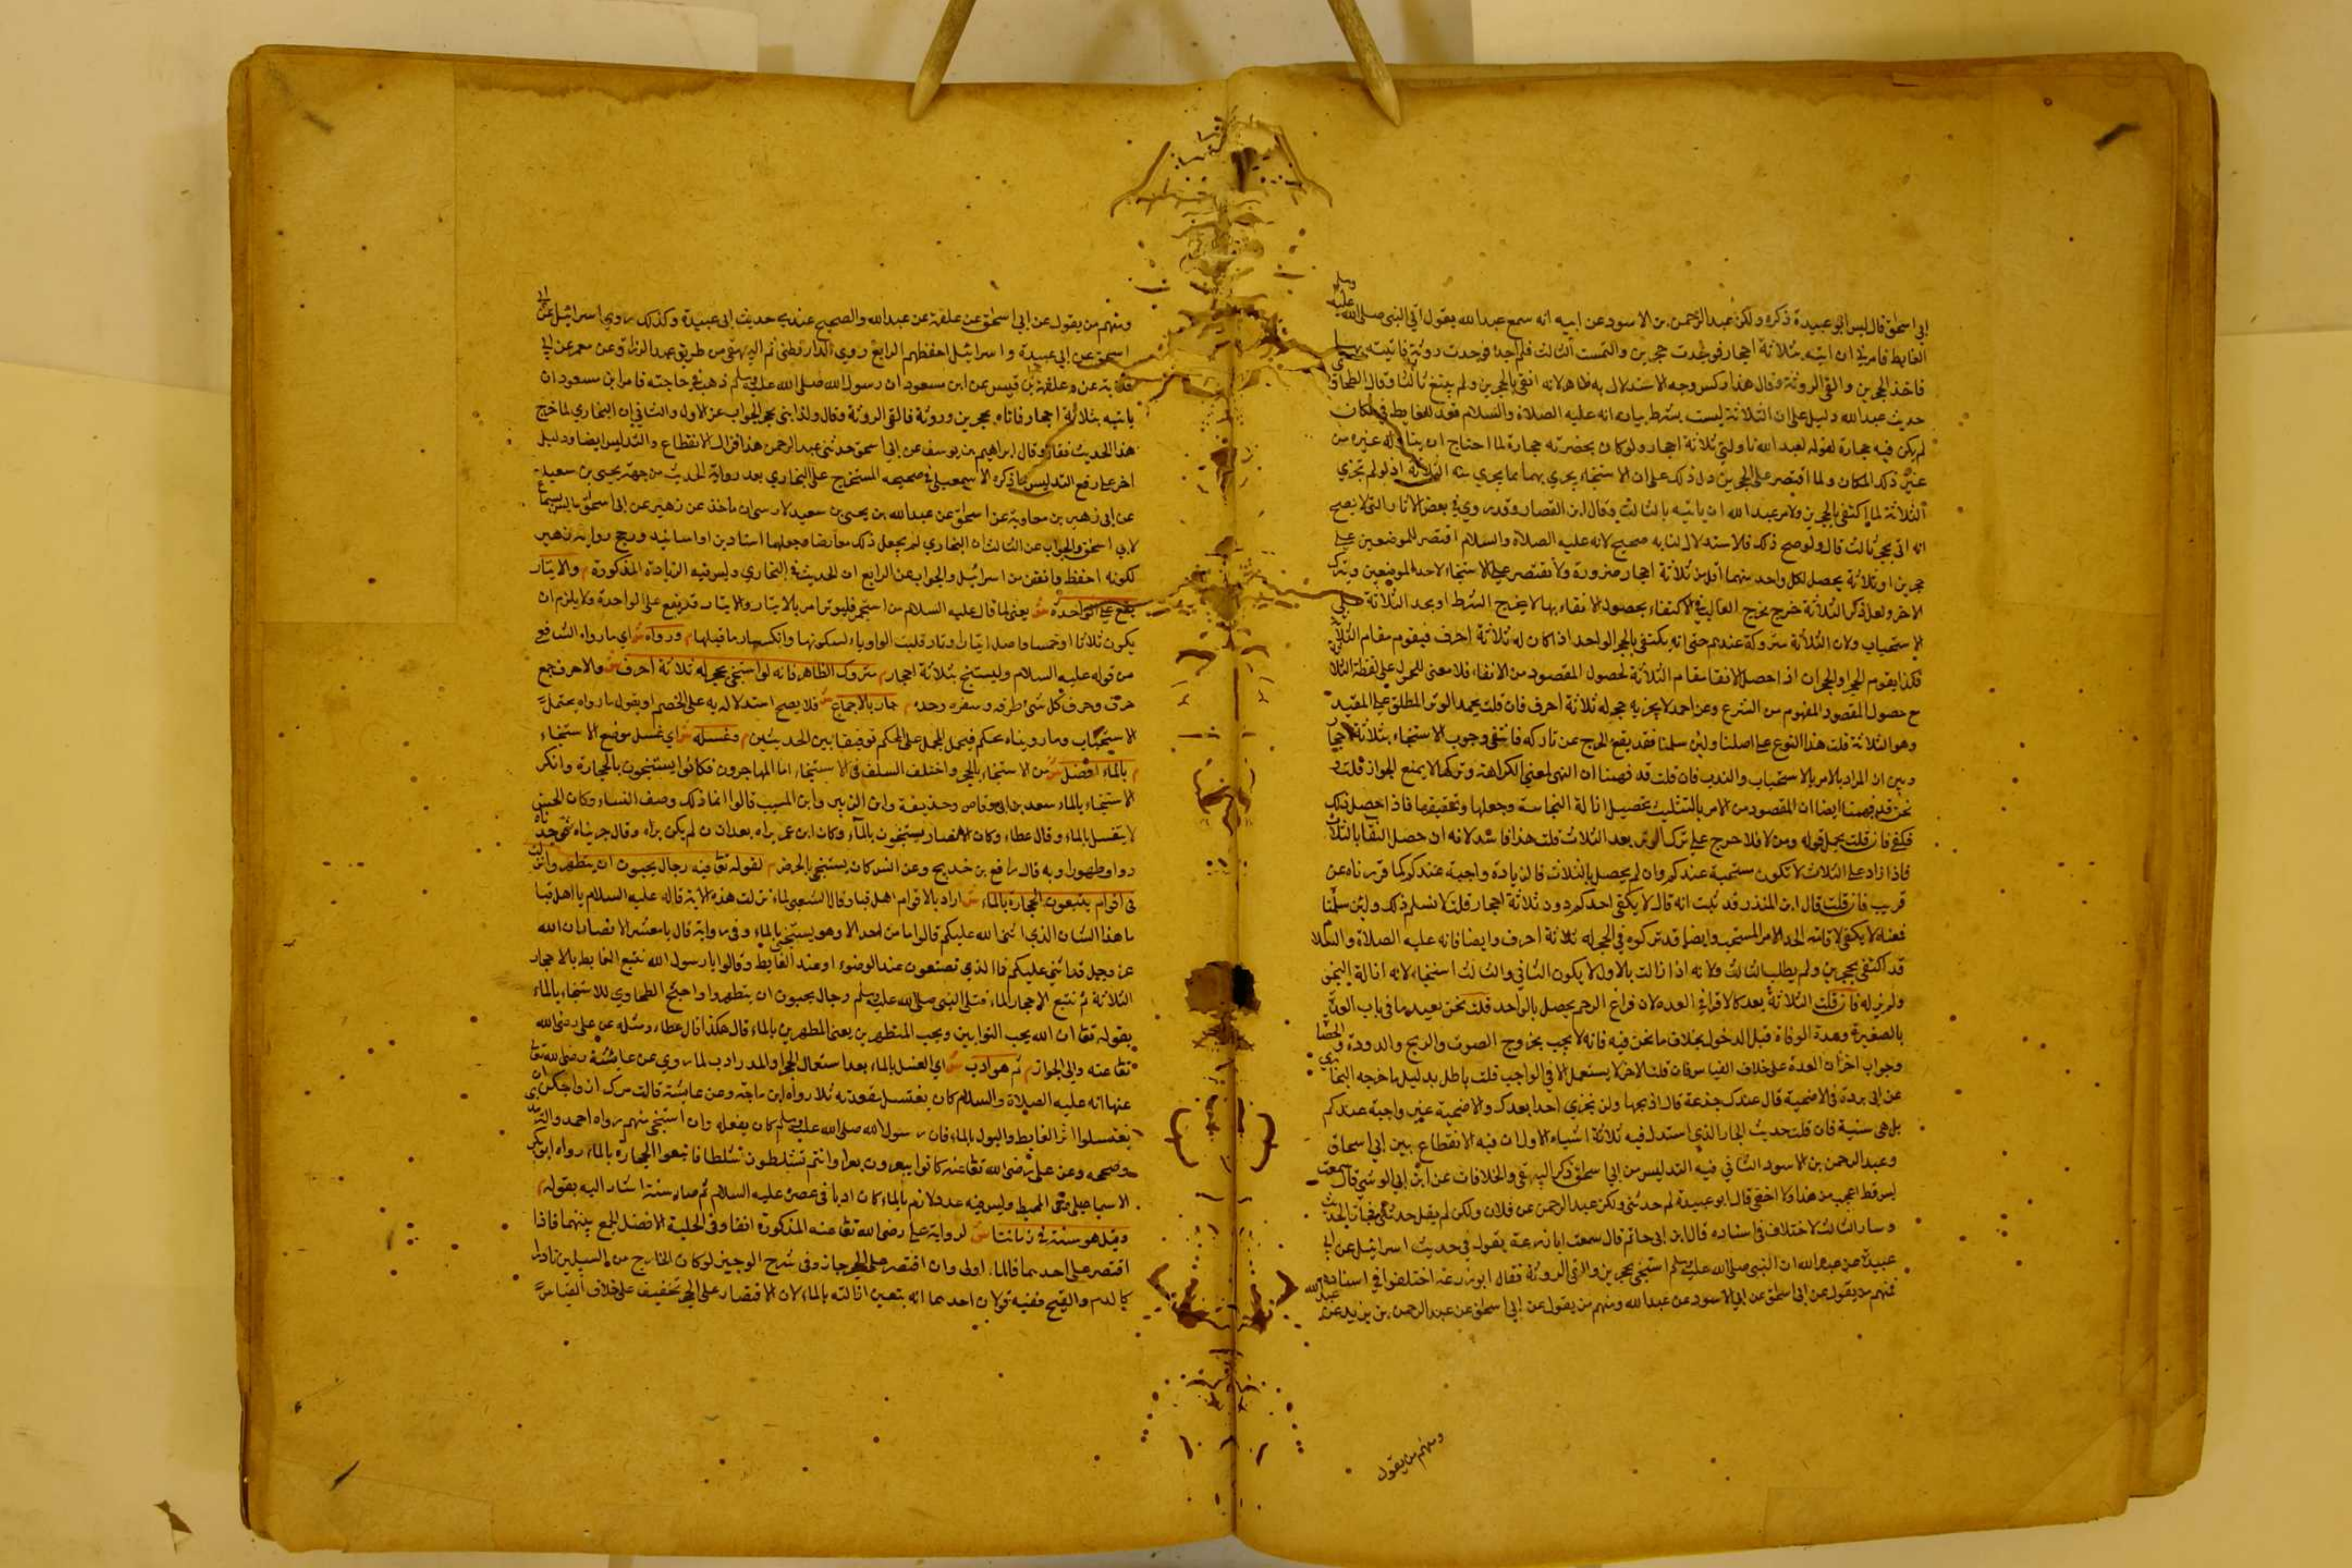 ابي اسحاق قال ليس ابو عبيدة ذكره ولكن عبد الرحمن بن الاسود عن ابيه انه سمع عبد الله يقول اتي النبي صلى الله عليه وسلم
الغايط فامرني ان اتيه بثلاثة احجار فوجدت حجرين والتمست الثالث فلم اجد فوجدت روثة فاتيته بها
فاخذ الحجرين والقى الروثة وقال هذا ركس وجه الاستدلال به ظاهر لانه انقى بالحجرين ولم يبتغ ثالثا وقال الطحاوي
حديث عبد الله دليل على ان الثلاثة ليست بشرط بيانه انه عليه الصلاة والسلام قعد للغايط في مكان
لم يكن فيه حجارة لقوله لعبد الله ناولني ثلاثة احجار ولو كان بحضرته حجارة لما احتاج ان يناوله غيره من
غير ذلك المكان ولما اقتصر على الحجرين دل ذلك على ان الاستنجاء يجزي بهما بما يجزي به الثلاثة اذ لو لم تجزي
الثلاثة لما اكتفى بالحجرين ولامر عبد الله ان ياتيه بالثالث وقال ابن القصار وقد روي في بعض الاثار التي لا تصح
انه اتى بحجر ثالث قال ولو صح ذلك فالاستدلال لنا به صحيح لانه عليه الصلاة والسلام اقتصر للموضعين على
حجرين او ثلاثة يحصل لكل واحد منهما اقل من ثلاثة احجار ضرورة ولا يقتصر على الاستنجاء لاحد الموضعين ويترك
الاخر ولعل ذكر الثلاثة خرج مخرج الغالب في الاكتفاء بحصول الانقاء بها لا مخرج الشرط او يحمل الثلاثة على
الاستحباب ولان الثلاثة متروكة عندهم حتى انه يكتفى بالحجر الواحد اذا كان له ثلاثة احرف فيقوم مقام الثلاثة
فكذا يقوم الحجر او الحجران اذا حصل الانقا مقام الثلاثة لحصول المقصود من الانقاء فلا معنى للحمل على لفظة الثلاثة
مع حصول المقصود المفهوم من الشرع وعن احمد لا يجزيه حجر له ثلاثة احرف فان قلت يحمل الوتر المطلق على المقيد
وهو الثلاثة قلت هذا النوع على اصلنا ولئن سلمنا فقد يقع الحرج عن تاركه فانتفى وجوب الاستنجاء بثلاثة احجار
وبين ان المراد بالامر بالاستحباب والندب فان قلت قد فهمنا ان النهي لمعنى الكراهة وتركها لا يمنع الجواز قلت و
نحن قد فهمنا ايضا ان المقصود من الامر بالتثليث تحصيل ازالة النجاسة وجعلها وتخفيفها فاذا حصل ذلك
فكفى فان قلت يحمل قوله ومن لا فلا حرج على ترك الوتر بعد الثلاث قلت هذا فاسد لانه ان حصل النقا بالثلاث
فاذا زاد على الثلاث لا تكون مستحبة عندكم وان لم يحصل بالثلاث فالزيادة واجبة عندكم كما قررناه عن
قريب فان قلت قال ابن المنذر قد ثبت انه قال لا يكفي احدكم دون ثلاثة احجار قلت لا نسلم ذلك ولئن سلمنا
فمعناه لا يكفي لاقامة الحد الامر المستحب وايضا قد تركوه في الحجر له ثلاثة احرف وايضا فانه عليه الصلاة والسلام
قد اكتفى بحجرين ولم يطلب الثالث ولانه اذا زالت بالاول لا يكون الثاني والثالث استنجاء لانه ازالة النجو
ولم يزله فان قلت الثلاثة بعد كالاقراء في العدة لان فراغ الرحم يحصل بالواحد قلت نحن نعيد ما في باب العدة
بالصغيرة وعدة الوفاة قبل الدخول بخلاف ما نحن فيه فانه لا يجب بخروج الصوت والريح والدودة والحصا
وجواب اخر ان العدة على خلاف القياس فان قلت الاجزاء لا يستعمل الا في الواجب قلت باطل بدليل ما خرجه البخاري
عن ابي بردة في الاضحية قال عندك جذعة قال اذبحها ولن تجزي احدا بعدك والاضحية غير واجبة عندكم
بل هي سنية فان قلت حديث الحجار الذي استدل فيه ثلاثة اشياء الاول ان فيه الانقطاع بين ابي اسحاق
وعبد الرحمن بن الاسود الثاني فيه التدليس من ابي اسحق ذكر البيهقي والخلافيات عن ابن ابي الوشي قال سمعت
ليس قط اعجب من هذا ولا اخفى قال ابو عبيدة لم حدثني ولكن عبد الرحمن عن فلان ولكن لم يقل حدثني فجاز الحديث
وسار الثالث الاختلاف في اسناده قال ابن ابي حاتم قال سمعت ابا زرعة يقول في حديث اسرائيل عن ابي
عبيدة عن عبد الله ان النبي صلى الله عليه وسلم استنجى بحجرين والقى الروثة فقال ابو زرعة اختلفوا في اسناده
فمنهم من يقول عن ابي اسحق عن ابي الاسود عن عبد الله ومنهم من يقول عن ابي اسحق عن عبد الرحمن بن يزيد عن عبد الله
ومنهم من يقول
ومنهم من يقول عن ابي اسحق عن علقمة عن عبد الله والصحيح عندي حديث ابي عبيدة وكذلك روي اسرائيل عن ابي
اسحق عن ابي عبيدة واسرائيل احفظهم الرابع روي الدارقطني ثم البيهقي من طريق عبد الرزاق عن معمر عن ابي
عن علقمة بن قيس عن ابن مسعود ان رسول الله صلى الله عليه وسلم ذهب في حاجته فامر ابن مسعود ان
ياتيه بثلاثة احجار فاتاه بحجرين وروثة فالقى الروثة وقال ولذا بني بحجر الجواب عن الاول والثاني ان البخاري لما خرج
هذا الحديث فقال وقال ابراهيم بن يوسف عن ابي اسحق حدثني عبد الرحمن هذا فزال الانقطاع والتدليس ايضا ودليل
اخر على رفع التدليس ما ذكره الاسمعيلي في صحيحه المستخرج على البخاري بعد رواية الحديث من جهة يحيى بن سعيد
عن ابي زهير بن معاوية عن اسحق عن عبد الله بن يحيى بن سعيد لا يرسي ان ياخذ عن زهير عن ابي اسحق ما ليس بسماع
لابي اسحق والجواب عن الثالث ان البخاري لم يجعل ذلك معارضا فجعلهما اسنادين او اسانيد ورجح رواية زهير
لكونه احفظ واتقن من اسرائيل والجواب عن الرابع ان الحديث في البخاري وليس فيه الزيادة المذكورة م والايتار
يقع على الواحدة ش يعني لما قال عليه السلام من استجمر فليوتر امر بالايتار والايتار قد يقع على الواحدة ولا يلزم ان
يكون ثلاثا او خمسا واصل ايتار اوتار قلبت الواو ياء لسكونها وانكسار ما قبلها م ورواه ش اي ما رواه الشافعي
من قوله عليه السلام وليستنج بثلاثة احجار م متروك الظاهر فانه لو استنجى بحجر له ثلاثة احرف ش والاحرف جمع
حرف وحرف كل شئ طرفه وشفيره وحده م جاز بالاجماع ش فلا يصح استدلاله به على الخصم او يقول ما رواه يحتمل
الاستحباب وما رويناه محكم فيحمل المحتمل على المحكم توفيقا بين الحديثين م وغسله ش اي غسل موضع الاستنجاء
م بالماء افضل ش من الاستنجاء بالحجر واختلف السلف في الاستنجاء اما المهاجرون فكانوا يستنجون بالحجارة وانكر
الاستنجاء بالماء سعد بن ابي وقاص وحذيفة وابن الزبير وابن المسيب قالوا انما ذلك وصف النساء وكان الحسن
لا يغتسل بالماء وقال عطاء وكان الانصار يستنجون بالماء وكان ابن عمر يراه بعد ان لم يكن يراه وقال جربناه فوجدناه
دواء وطهورا وبه قال رافع بن خديج وعن انس كان يستنجي بالحرض م لقوله تعا فيه رجال يحبون ان يتطهروا نزلت
في اقوام يتبعون الحجارة بالماء ش اراد بالاقوام اهل قبا وقال الشعبي لما نزلت هذه الاية قال عليه السلام يا اهل قبا
ما هذا الشان الذي اثنى الله عليكم قالوا ما من احد الا وهو يستنجي بالماء وفي رواية قال يا معشر الانصار ان الله
عز وجل قد اثنى عليكم فما الذي تصنعون عند الوضوء او عند الغايط وقالوا يا رسول الله نتبع الغايط بالاحجار
الثلاثة ثم نتبع الاحجار الماء فتلى النبي صلى الله عليه وسلم رجال يحبون ان يتطهروا واحتج الطحاوي للاستنجاء بالماء
بقوله تعا ان الله يحب التوابين ويحب المتطهرين يعني المطهرين بالماء قال هكذا قال عطاء ومثله عن علي رضي الله
تعا عنه والى الجواز م ثم هو ادب ش اي الغسل بالماء بعد استعمال الحجر او المدر ادب لما روي عن عايشة رضي الله تعا
عنها انه عليه الصلاة والسلام كان يغتسل مقعدته ثلاثا رواه ابن ماجه وعن عائشة قالت مرن ازواجكن ان
يغتسلوا اثر الغايط والبول بالماء فان رسول الله صلى الله عليه وسلم كان يفعله وان استنجى منهم رواه احمد والترمذي
وصححه وعن علي رضي الله تعا عنه كانوا يبعرون بعرا وانتم تثلطون ثلطا فاتبعوا الحجارة بالماء رواه ابو بكر
الاسماعيلي وفي المحيط وليس فيه عدد لانه بالماء كان ادبا في عصره عليه السلام ثم صار سنة اشار اليه بقوله م
وقيل هو سنة في زماننا ش لرواية علي رضي الله تعا عنه المذكورة انفا وفي الحلية الافضل الجمع بينهما فاذا
اقتصر على احدهما فالماء اولى وان اقتصر على الحجر جاز وفي شرح الوجيز لو كان الخارج من السبيلين نادرا
كالدم والقيح ففيه قولان احدهما انه يتعين ازالته بالماء لان الاقتصار على الحجر تخفيف على خلاف القياس